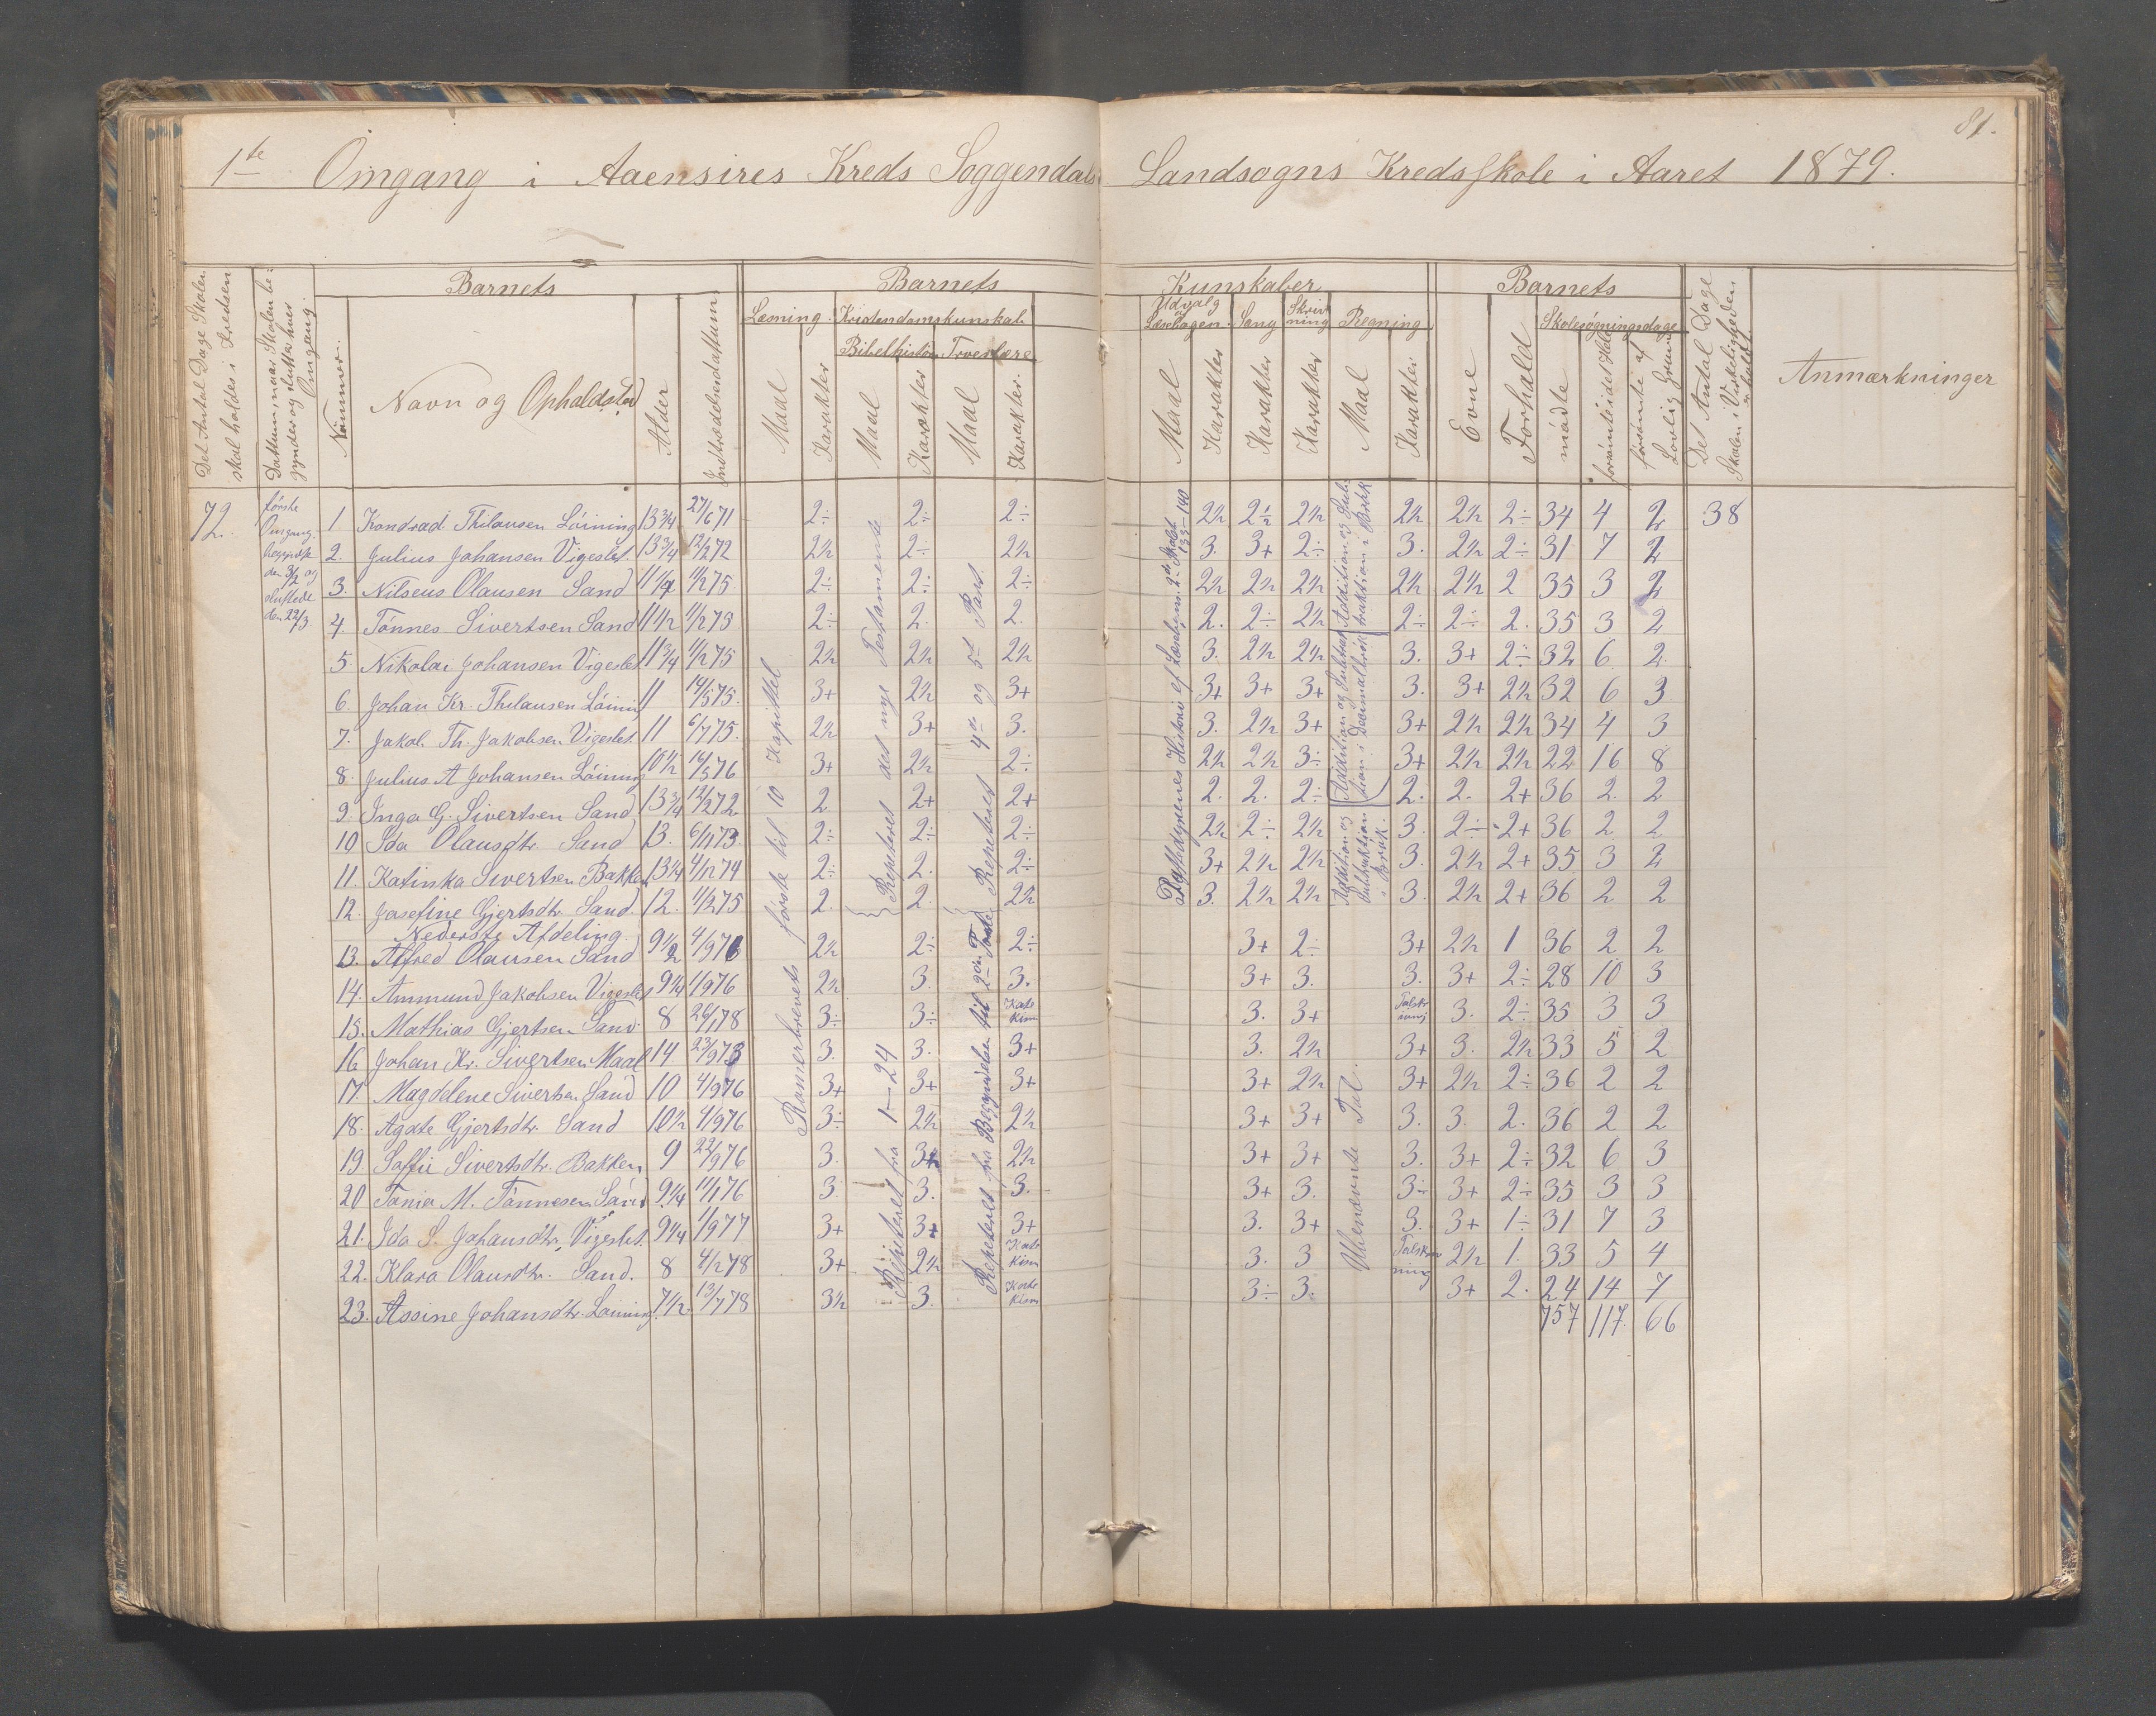 81.
1te Omgang i Aaensires Kreds Soggendals Landsogns Kredsskole i Aaret 1879.
Det Antal Dage Skolen skal holdes i Kredsen
Dattum, naar Skolen begynder og slutter hver Omgang.
Nummer.
Barnets
Navn og Opholdsted
Alder
Indtrædelsesdattum
Barnets Kunskaber
Læsning. Kristendomskunskab
Bibelhistorie Troeslære
Maal Karakter Maal Karakter Maal Karakter.
Udvalg af Læsebogen. Sang Skrivning Regning
Maal Karakter Karakter Karakter Maal Karakter
Barnets
Evne Forhold Skolesøgningsdage
mødte forsømte i det Hele forsømte af Lovlig Grund
Det Antal Dage Skolen i Virkeligheden er holdt
Anmærkninger
72. første Omgang begyndte den 3/2 og sluttede den 22/3.
1 Kondrad Thilausen Löining 13 3/4 27/6 71 2÷ 2÷ 2÷ 2½ 2½ 2½ 2½ 2½ 2÷ 34 4 2 38
2. Julius Johansen Vigeslet. 13 3/4 12/2 72 2½ 2÷ 2½ 3. 3+ 2÷ 3. 2½ 2÷ 31 7 2
3. Nilseus Olausen Sand 11 1/4 11/2 75. 2÷ 2÷ 2÷ 2½ 2½ 2½ 2½ 2½ 2 35 3 2
4. Tönnes Sivertsen Sand 11½ 11/2 75 2÷ 2. 2. 2. 2÷ 2½ 2÷ 2÷ 2. 35 3 2
5. Nikolai Johansen Vigeslet 11 3/4 11/2 75 2½ 2½ 2½ 3. 2½ 2½ 3. 3+ 2÷ 32 6. 2.
6. Johan Kr. Thilausen Löining 11 14/5 75. 3+ 2½ 3+ 3+ 3+ 3+ 3. 3+ 2½ 32 6 3
7. Jakob. Th. Jakobsen Vigeslet. 11 6/7 75. 2½ 3+ 3. 3. 2½ 3+ 3+ 2½ 2½ 34 4 3
8. Julius A Johansen Löining 10½ 16/5 76 3+ 2½ 2÷ 2½ 2½ 3÷ 3+ 2½ 2½ 22 16 8
9. Inga G. Sivertsen Sand 13 3/4 12/2 72 2 2+ 2+ 2. 2. 2÷ 2. 2. 2+ 36 2. 2
10 Ida Olausdtr. Sand 13. 6/11 73. 2÷ 2÷ 2÷ 2½ 2÷ 2½ 3. 2÷ 2+ 36 2 2
11. Katinka Sivertsen Bakken 13¼ 4/12 74 2÷ 2. 2÷ 3+ 2½ 2½ 3. 2½ 2+ 35 3 2
12. Josefine Gjertsdtr. Sand. 12. 11/2 75 2. 2. 2½ 3. 2½ 2½ 3. 2½ 2+ 36 2 2
Nederste Afdeling.
13. Alfred Olausen Sand 9½ 4/9 76 2½ 2÷ 2÷ 3+ 2÷ 3+ 2½ 1 36 2 2
14. Ammund Jakobsen Vigeslet 9¼ 1/9 76 2½ 3. 3. 3+ 3. 3. 3+ 2÷ 28 10 3
15. Mathias Gjertsen Sand. 8 26/1 78 3÷ 3÷ Katekism 3. 3+ 3. 2÷ 35 3 3
16. Johan Kr. Sivertsen Maal 14. 23/9 73 3. 3. 3+ 3. 2½ 3+ 3. 2½ 33 5 2
17. Magdelene Sivertsen Sand 10 4/9 76 3+ 3+ 3+ 3+ 2½ 3+ 2½ 2÷ 36 2 2
18. Agate Gjertsdtr. Sand 10½ 4/9 76 3÷ 2½ 2½ 3+ 3+ 3. 3. 2. 36 2 2
19. Saffie Sivertsdtr. Bakken 9 22/9 76 3. 3+ 2½ 3+ 3+ 3. 3+ 2÷ 32 6 3
20 Tonia M. Tönnesen Sand 9¼ 11/1 76 3. 3. 3. 3+ 3. 3÷ 3+ 2÷ 35 3 3
21. Ida S. Johansdtr. Vigeslet. 9¼ 1/9 77 3+ 3+ 3+ 3. 3+ 3. 3+ 1÷ 31 7 3
22. Klara Olausdtr. Sand. 8 4/2 78 3+ 2½ Katekism 3. 3 Talskrivning 2½ 1. 33 5 4
23. Assine Johansdtr. Löining. 7½ 13/7 78 3½ 3. Katekism 3÷ 3. 3+ 2. 24 14 7
757 117. 66
Romerbrevets første til 10 Kapittel
Repeteret det nye Testamente
Repeteret fra 1–24
Repeteret 4de og 5te Part.
Repeteret fra Begyndelse til 2den Part
Addition og Subtraktion i Brøk
Addition og Subtraktion i Decimalbrøk
Addition og Subtraktion i Brøk.
Ubenævnte Tal.